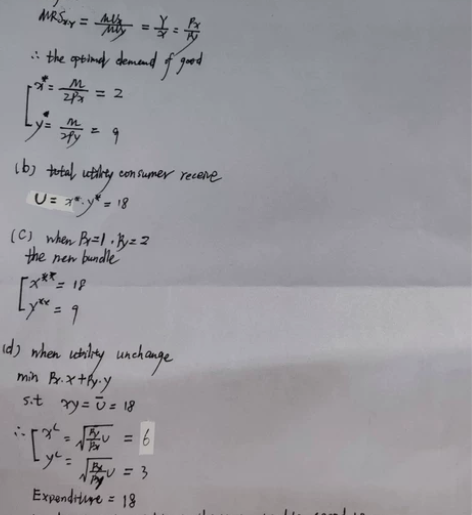 MRSxy = MUx/MUy = Y/X = Px/Py
∴ the optimal demand of good
x* = M/2Px = 2
y* = M/2Py = 9
(b) total utility consumer receive
U = x*·y* = 18
(c) when Px=1, Py=2
the new bundle
x** = 18
y** = 9
(d) when utility unchange
min Px·x+Py·y
s.t xy = Ū = 18
∴ x^c = √(Py/Px U) = 6
y^c = √(Px/Py U) = 3
Expenditure = 18